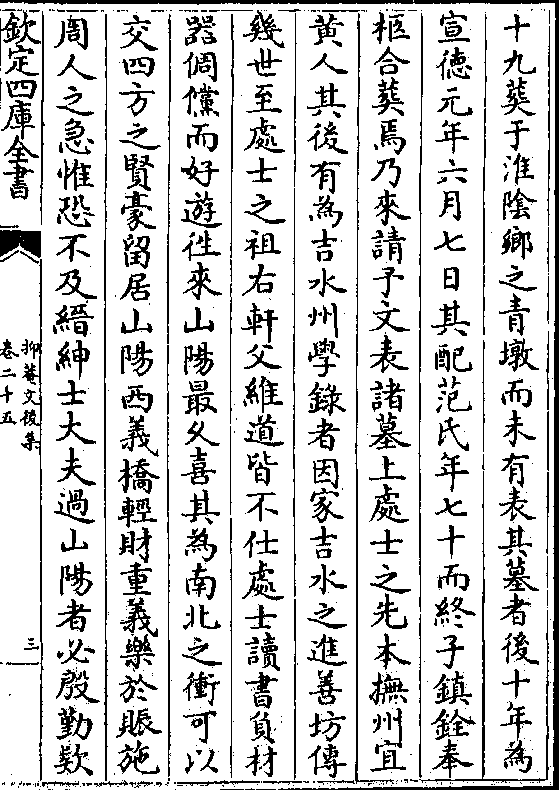 十九葬于淮陰鄉之青墩而未有表其墓者後十年為
宣德元年六月七日其配范氏年七十而終子鎮銓奉
柩合葬焉乃來請予文表諸墓上處士之先本撫州宜
黄人其後有為吉水州學錄者因家吉水之進善坊傳
幾世至處士之祖右軒父維道皆不仕處士讀書負材
器倜儻而好遊徃來山陽最乆喜其為南北之衝可以
交四方之賢豪留居山陽西義橋輕財重義樂於賑施
周人之急惟恐不及縉紳士大夫過山陽者必殷勤欵
欽定四庫全書
抑菴文後集
卷二十五
三